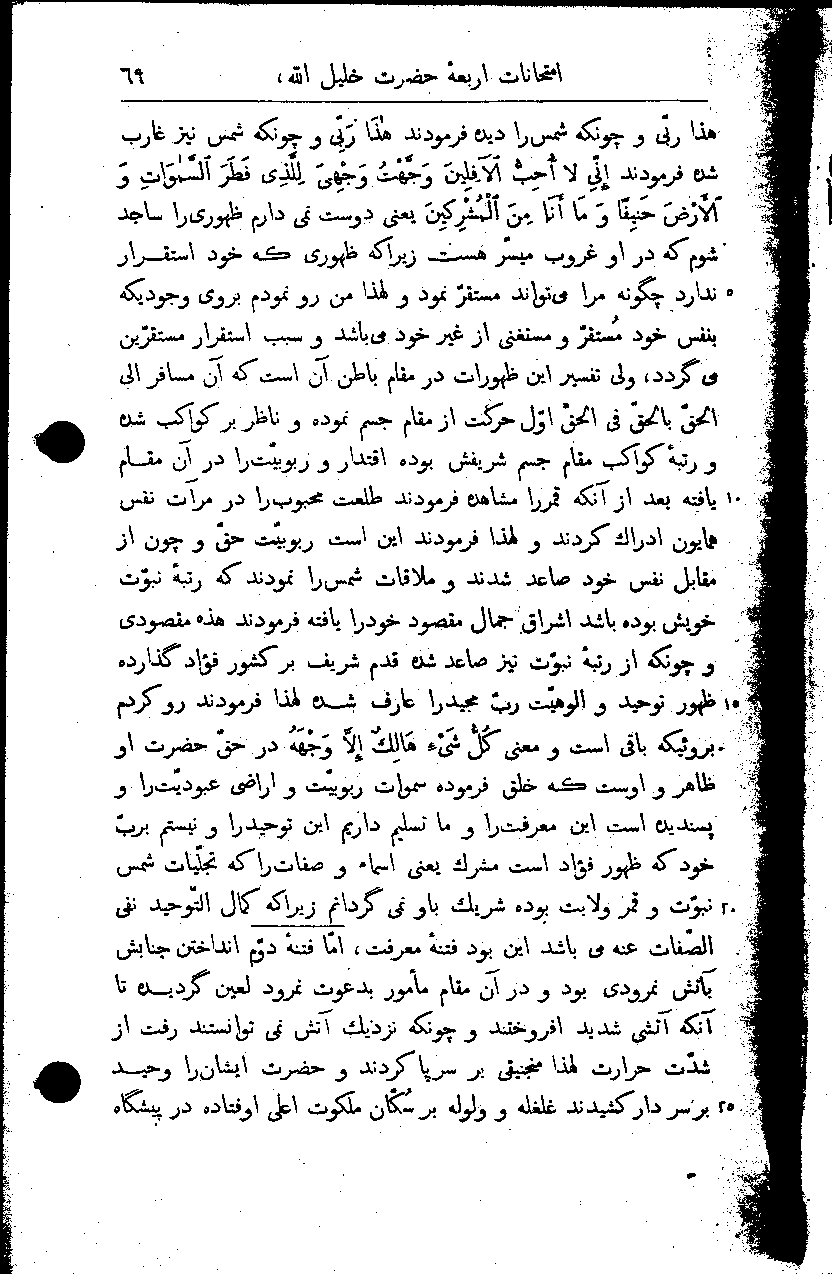 امتحانات اربعهٔ حضرت خلیل الله، ٦٩
هذا ربّی و چونکه شمس‌را دیده فرمودند هٰذَا رَبِّی و چونکه شمس نیز غارب
شده فرمودند إِنِّي لا أُحِبُّ ٱلْآفِلِينَ وَجَّهْتُ وَجْهِیَ لِلَّذِی فَطَرَ ٱلسَّمٰوَاتِ وَ
ٱلْأَرْضَ حَنِيفًا وَ مَا أَنَا مِنَ ٱلْمُشْرِكِينَ یعنی دوست نمی دارم ظهوری‌را ساجد
شوم که در او غروب میسّر هست زیراکه ظهوری که خود استقرار
٥ ندارد چگونه مرا می‌تواند مستقرّ نمود و لهذا من رو نمودم بروی وجودیکه
بنفس خود مُستقرّ و مستغنی از غیر خود می‌باشد و سبب استقرار مستقرّین
می گردد، ولی تفسیر این ظهورات در مقام باطن آن است که آن مسافر الی
الحقّ بالحقّ فی الحقّ اوّل حرکت از مقام جسم نموده و ناظر بر کواکب شده
و رتبهٔ کواکب مقام جسم شریفش بوده اقتدار و ربوبیّت‌را در آن مقام
١٠ یافته بعد از آنکه قمررا مشاهده فرمودند طلعت محبوب‌را در مرآت نفس
همایون ادراك کردند و لهذا فرمودند این است ربوبیّت حقّ و چون از
مقابل نفس خود صاعد شدند و ملاقات شمس‌را نمودند که رتبهٔ نبوّت
خویش بوده باشد اشراق جمال مقصود خودرا یافته فرمودند هذه مقصودی
و چونکه از رتبهٔ نبوّت نیز صاعد شده قدم شریف بر کشور فؤاد گذارده
١٥ ظهور توحید و الوهیّت ربّ مجیدرا عارف شده لهذا فرمودند رو کردم
بروئیکه باقی است و معنی کُلُّ شَیْءٍ هَالِكٌ إِلَّا وَجْهَهُ در حقّ حضرت او
ظاهر و اوست که خلق فرموده سموات ربوبیّت و اراضی عبودیّت‌را و
پسندیده است این معرفت‌را و ما تسلیم داریم این توحیدرا و نیستم بربّ
خود که ظهور فؤاد است مشرك یعنی اسماء و صفات‌را که تجلّیات شمس
٢٠ نبوّت و قمر ولایت بوده شریك باو نمی گردانم زیراکه کمال التّوحید نفی
الصّفات عنه می باشد این بود فتنهٔ معرفت، امّا فتنهٔ دوّم انداختن جنابش
بآتش نمرودی بود و در آن مقام مأمور بدعوت نمرود لعین گردیده تا
آنکه آتشی شدید افروختند و چونکه نزدیك آتش نمی توانستند رفت از
شدّت حرارت لهذا منجنیقی بر سرپا کردند و حضرت ایشان‌را وحید
٢٥ بر سر دار کشیدند غلغله و ولوله بر سُکّان ملکوت اعلی اوفتاده در پیشگاه